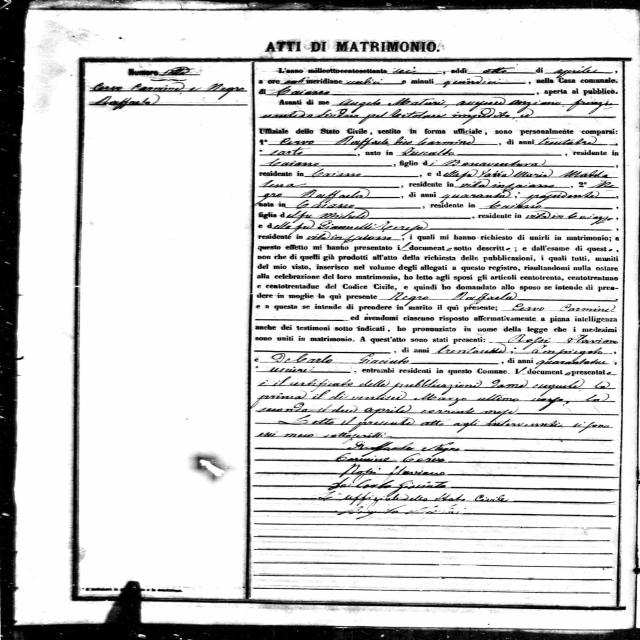 ATTI DI MATRIMONIO.
Numero
Cervo Carmine e Negro
Raffaela
L'anno milleottocentosettanta sei, addì otto di aprile
a ore meridiane undici e minuti quindici, nella Casa comunale
di Caiazzo, aperta al pubblico.
Avanti di me Angelo
Uffiziale dello Stato Civile, vestito in forma uffiziale, sono personalmente comparsi:
1° Cervo Raffaele Carmine, di anni trentatre
sarto, nato in, residente in
Caiazzo, figlio di Bonaventura
residente in Caiazzo, e della fu Maria Madda
lena, residente in vita in, 2° Ne
gro Raffaela, di anni quaranta,
nata in Caiazzo, residente in Caiazzo
figlia del fu Michele, residente in vita in Caiazzo
e della fu Giannelli Teresa
residente in vita in, i quali mi hanno richiesto di unirli in matrimonio; a
questo effetto mi hanno presentato i documenti sotto descritti; e dall'esame di questi,
non che di quelli già prodotti all'atto della richiesta delle pubblicazioni, i quali tutti, muniti
del mio visto, inserisco nel volume degli allegati a questo registro, risultandomi nulla ostare
alla celebrazione del loro matrimonio, ho letto agli sposi gli articoli centotrenta, centotrentuno
e centotrentadue del Codice Civile, e quindi ho domandato allo sposo se intende di pren-
dere in moglie la qui presente Negro Raffaela
e a questa se intende di prendere in marito il qui presente; Cervo Carmine
ed avendomi ciascuno risposto affermativamente a piena intelligenza
anche dei testimoni sotto indicati, ho pronunziato in nome della legge che i medesimi
sono uniti in matrimonio. A quest'atto sono stati presenti: Rossi Flaviano
, di anni trentadue, impiegato
e De Carlo Giacinto, di anni
usciere, entrambi residenti in questo Comune. I documenti presentati
è il certificato delle pubblicazioni
prima il di ventisei Marzo ultimo, la
seconda il due aprile corrente mese
Letto il presente atto agli intervenuti, si sono
con meco sottoscritti
Raffaela Negro
Carmine Cervo
Rossi Flaviano
De Carlo Giacinto
L'uffiziale dello Stato Civile